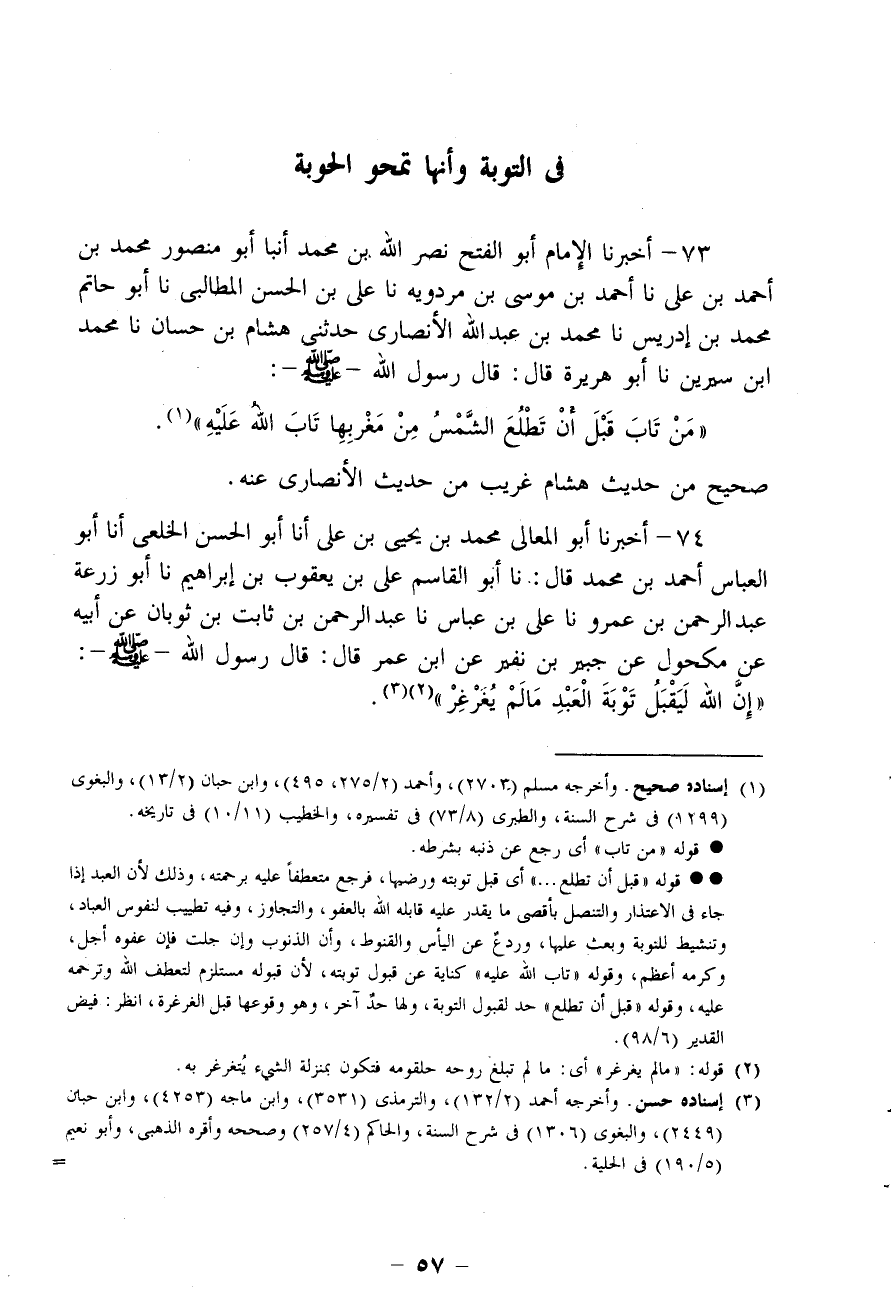 فى التوبة وأنها تمحو الحوبة
٧٣ – أخبرنا الإمام أبو الفتح نصر الله بن محمد أنبا أبو منصور محمد بن
أحمد بن على نا أحمد بن موسى بن مردويه نا على بن الحسن المطالبى نا أبو حاتم
محمد بن إدريس نا محمد بن عبدالله الأنصارى حدثنى هشام بن حسان نا محمد
ابن سيرين نا أبو هريرة قال: قال رسول الله – ﷺ –:
«مَنْ تَابَ قَبْلَ أَنْ تَطْلُعَ الشَّمْسُ مِنْ مَغْرِبِها تَابَ اللهُ عَلَيْهِ»(١).
صحيح من حديث هشام غريب من حديث الأنصارى عنه.
٧٤ – أخبرنا أبو المعالى محمد بن يحيى بن على أنا أبو الحسن الخلعى أنا أبو
العباس أحمد بن محمد قال: نا أبو القاسم على بن يعقوب بن إبراهيم نا أبو زرعة
عبدالرحمن بن عمرو نا على بن عباس نا عبدالرحمن بن ثابت بن ثوبان عن أبيه
عن مكحول عن جبير بن نفير عن ابن عمر قال: قال رسول الله – ﷺ –:
«إِنَّ الله لَيَقْبَلُ تَوْبَةَ الْعَبْدِ مَالَمْ يُغَرْغِرْ»(٢)(٣).
(١) إسناده صحيح. وأخرجه مسلم (٢٧٠٣)، وأحمد (٢٧٥/٢، ٤٩٥)، وابن حبان (١٣/٢)، والبغوى
(١٢٩٩) فى شرح السنة، والطبرى (٧٣/٨) فى تفسيره، والخطيب (١٠/١١) فى تاريخه.
● قوله «من تاب» أى رجع عن ذنبه بشرطه.
●● قوله «قبل أن تطلع...» أى قبل توبته ورضيها، فرجع متعطفاً عليه برحمته، وذلك لأن العبد إذا
جاء فى الاعتذار والتنصل بأقصى ما يقدر عليه قابله الله بالعفو، والتجاوز، وفيه تطييب لنفوس العباد،
وتنشيط للتوبة وبعث عليها، وردعٌ عن اليأس والقنوط، وأن الذنوب وإن جلت فإن عفوه أجل،
وكرمه أعظم، وقوله «تاب الله عليه» كناية عن قبول توبته، لأن قبوله مستلزم لتعطف الله وترحمه
عليه، وقوله «قبل أن تطلع» حد لقبول التوبة، ولها حدٌ آخر، وهو وقوعها قبل الغرغرة، انظر: فيض
القدير (٩٨/٦).
(٢) قوله: «مالم يغرغر» أى: ما لم تبلغ روحه حلقومه فتكون بمنزلة الشيء يُتغرغر به.
(٣) إسناده حسن. وأخرجه أحمد (١٣٢/٢)، والترمذى (٣٥٣١)، وابن ماجه (٤٢٥٣)، وابن حبان
(٢٤٤٩)، والبغوى (١٣٠٦) فى شرح السنة، والحاكم (٢٥٧/٤) وصححه وأقره الذهبى، وأبو نعيم
(١٩٠/٥) فى الحلية. =
– ٥٧ –